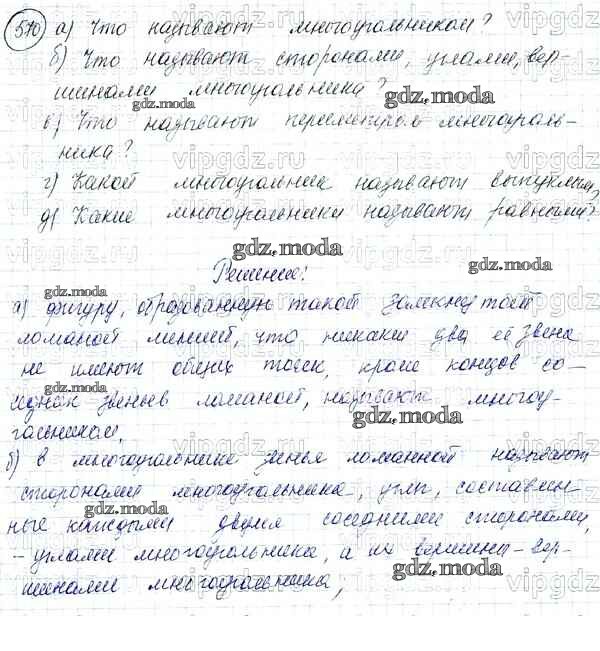 570 а) Что называют многоугольником?
б) Что называют сторонами, углами, вер-
шинами многоугольника?
в) Что называют периметром многоуголь-
ника?
г) Какой многоугольник называют выпуклым?
д) Какие многоугольники называют равными?
Решение:
а) фигуру, образованную такой замкнутой
ломаной линией, что никакие два её звена
не имеют общих точек, кроме концов со-
седних звеньев ломаной, называют многоу-
гольником.
б) в многоугольнике звенья ломанной называют
сторонами многоугольника, углы, составлен-
ные каждыми двумя соседними сторонами,
- углами многоугольника, а их вершины - вер-
шинами многоугольника;
gdz.moda
vipgdz.ru